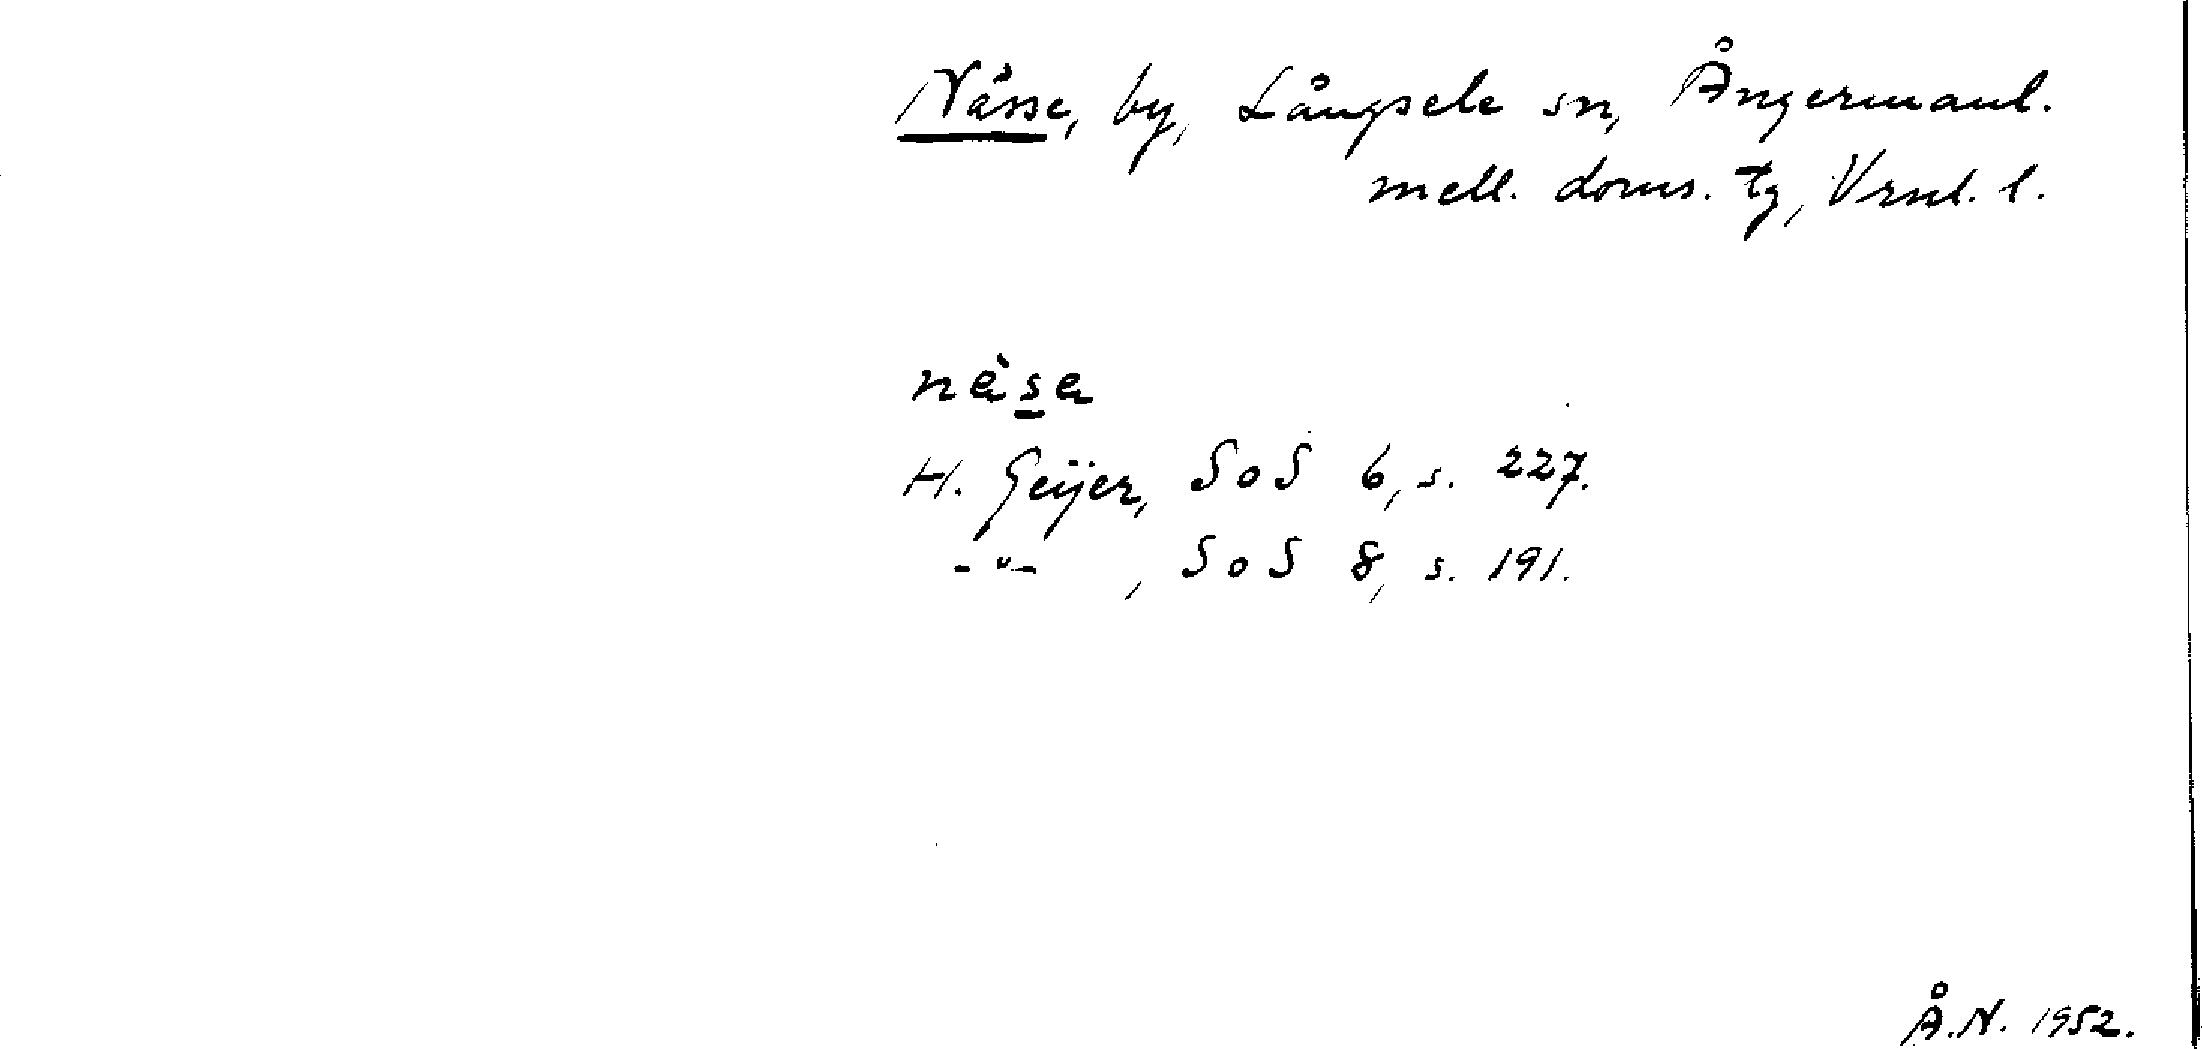 Nässe, by, Långsele sn, Ångermanl.
mell. doms. tg, Vrnl. l.
nèsa
H. Geijer, SoS 6, s. 227.
-"- , SoS 8, s. 191.
Å.N. 1952.